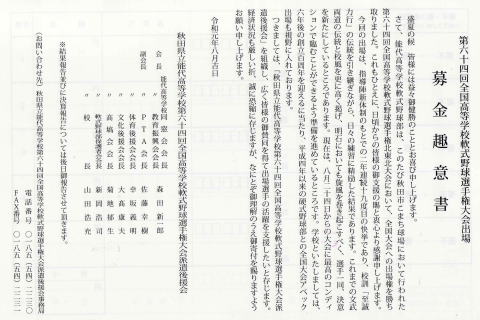 第六十四回全国高等学校軟式野球選手権大会出場
募金趣意書
盛夏の候　皆様には益々御健勝のこととお喜び申し上げます。
さて、能代高等学校軟式野球部は、このたび秋田市こまち球場において行われた
第六十四回全国高等学校軟式野球選手権大会北東北大会において、全国大会への出場権を勝ち
取りました。これもひとえに、日頃からの皆様の御支援の賜と衷心より感謝申し上げます。
今回の出場は、指導陣新体制のもとでの二年連続十九回目の快挙であり、校訓「至誠
力行」の伝統を引き継ぎながら、日々の練習に精励した結果であります。これまでの文武
両道の伝統と校風を更に高く掲げ、明石においても旋風を巻き起こすべく、選手一同、決意
を新たにしているところであります。現在は、八月二十四日からの大会に最高のコンディ
ションで臨むことができるよう準備を進めているところです。学校といたしましては、
六年後の創立百周年を迎えるに当たり、平成四年以来の硬式野球部との全国大会アベック
出場も視野に入れております。
つきましては、「秋田県立能代高等学校第六十四回全国高等学校軟式野球選手権大会派
遣後援会」を組織し、広く皆様の御賛同を得て出場選手の活躍を支援したいと存じます。
経済状況も厳しい折、誠に恐縮に存じますが、なにとぞ御理解のうえ御寄付を賜りますよう
お願い申し上げます。
令和元年八月吉日
秋田県立能代高等学校第六十四回全国高等学校軟式野球選手権大会派遣後援会
会長　能代高等学校同窓会会長　森田新一郎
副会長　〃　ＰＴＡ会長　佐藤幸樹
〃　〃　体育後援会会長　幸坂義明
〃　〃　文化後援会会長　大髙康夫
〃　〃　高塙会会長　菊地
〃　〃　軟式野球部保護者会会長
〃　〃　校長　山田浩充
※結果報告並びに決算報告については後日御報告させて頂きます。
《お問い合わせ先》秋田県立能代高等学校第六十四回全国高等学校軟式野球選手権大会派遣後援会事務局
電話番号　〇一八五（五四）二二三〇
ＦＡＸ番号　〇一八五（五四）二二三一